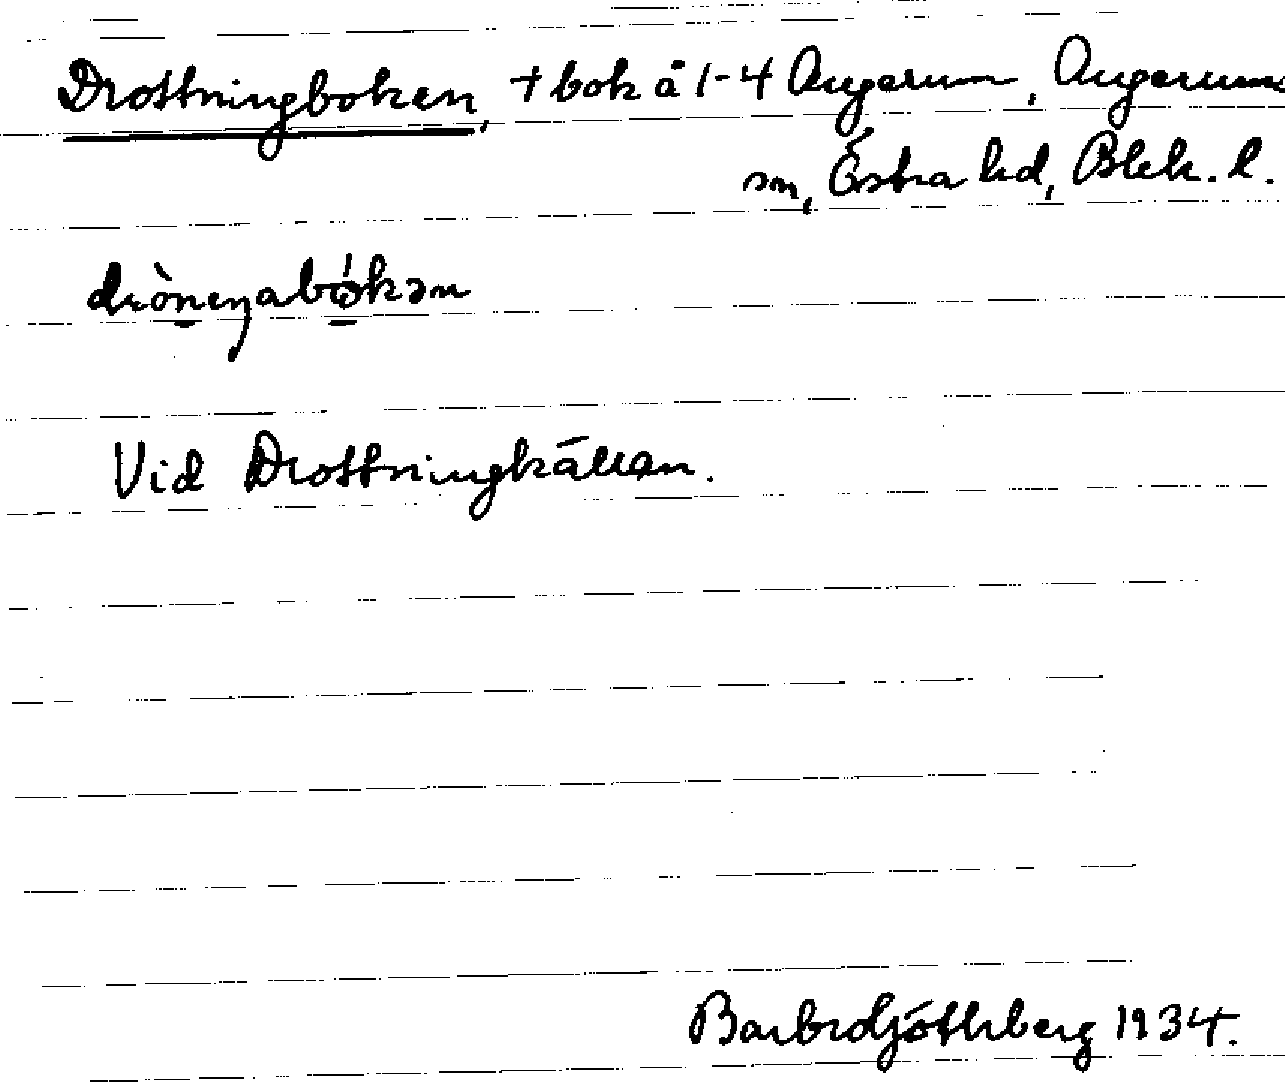 Drottningboken, + bok å 1-4 Augerum, Augerums
sn, Östra hd, Blek. l.
Vid Drottningkällan.
Barbro Götlberg 1934.